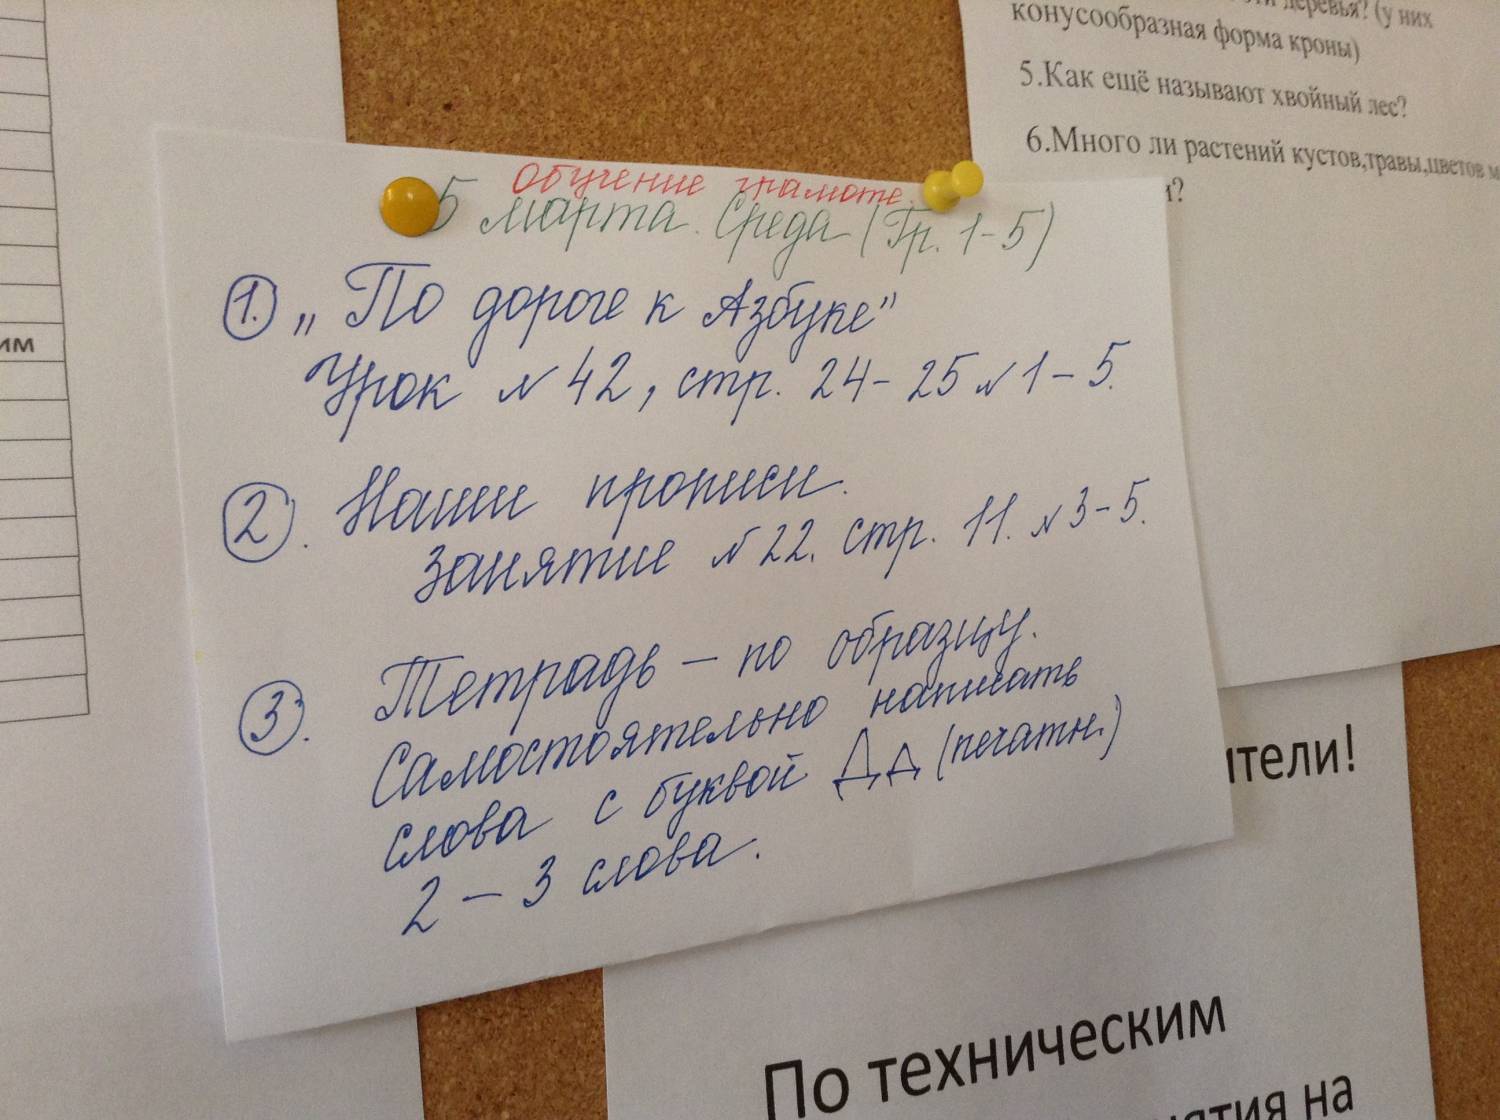 деревья? (у них
конусообразная форма кроны)
5.Как ещё называют хвойный лес?
6.Много ли растений кустов,травы,цветов
им
Обучение грамоте.
5 марта. Среда (Гр. 1-5)
1. „По дороге к Азбуке"
Урок № 42, стр. 24-25 № 1-5.
2. Наши прописи.
Занятие № 22. стр. 11. № 3-5.
3. Тетрадь - по образцу.
Самостоятельно написать
слова с буквой Д д (печатн.)
2 - 3 слова.
ители!
По техническим
на